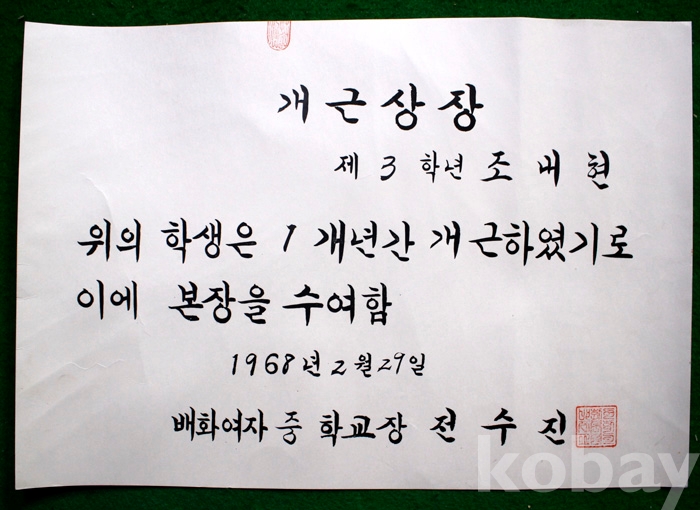 개근상장
제 3 학년 조내현
위의 학생은 1 개년간 개근하였기로
이에 본장을 수여함
1968년 2월 29일
배화여자 중 학교장 전 수 진
kobay